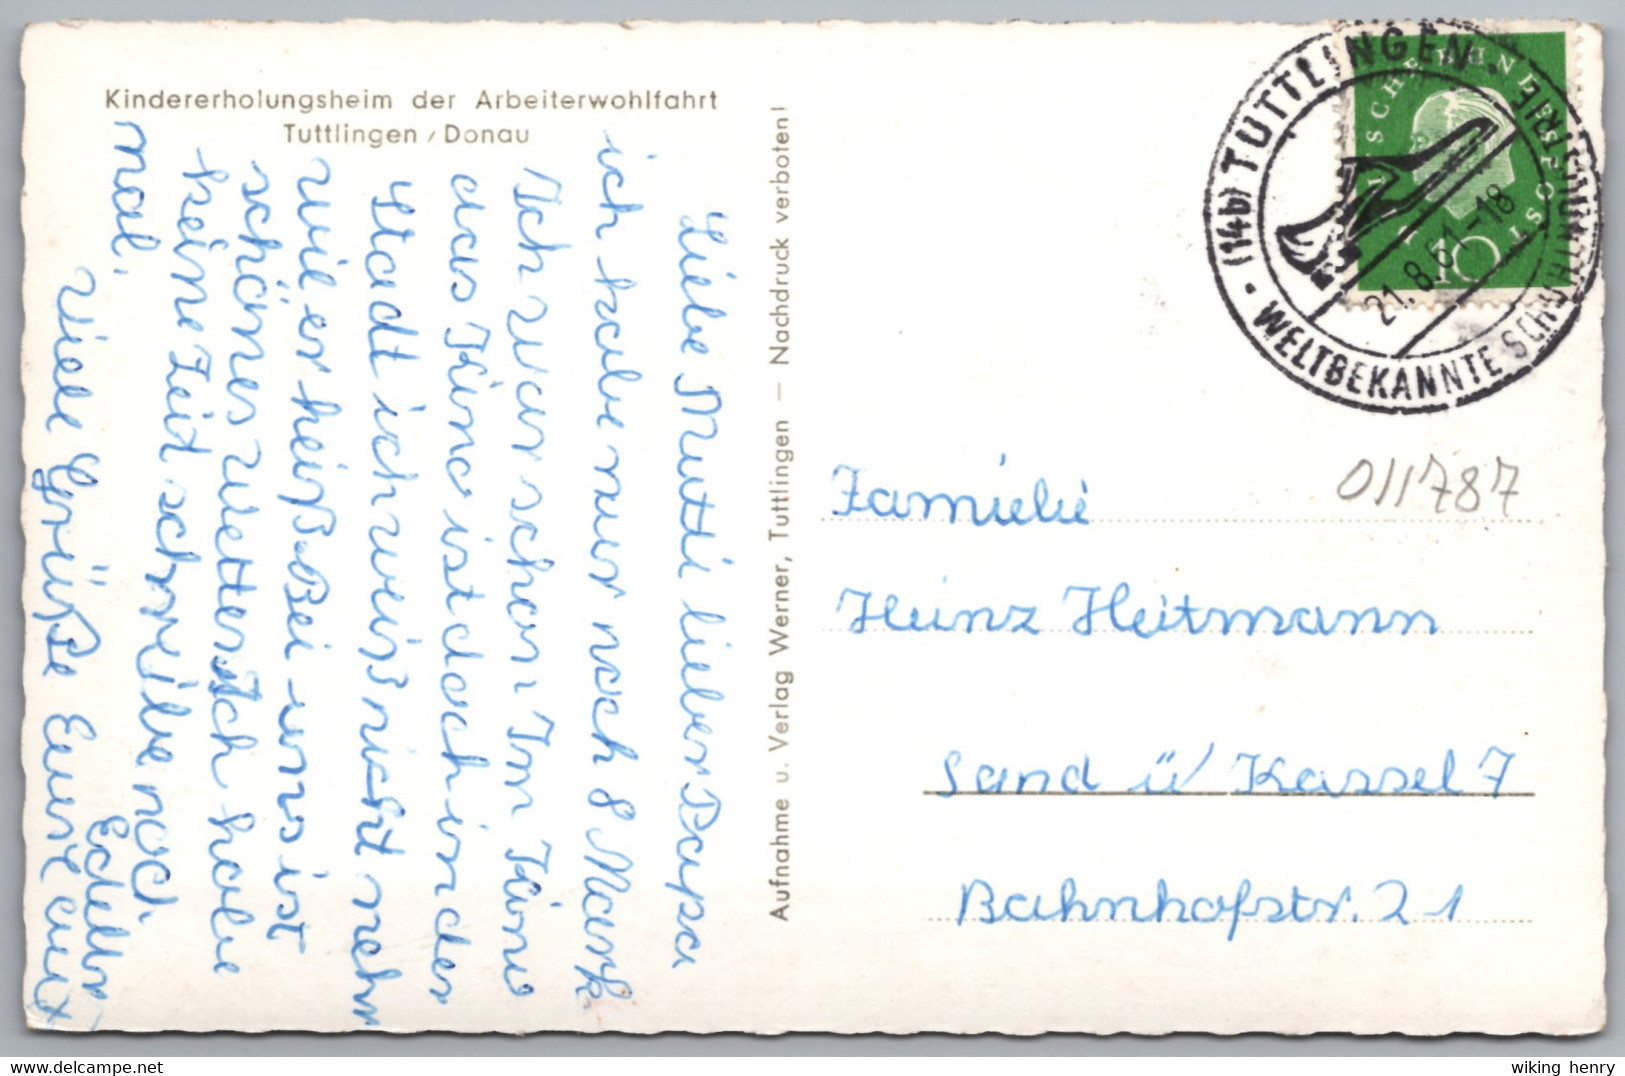 Kindererholungsheim der Arbeiterwohlfahrt
Tuttlingen / Donau
Liebe Mutti lieber Papa
ich habe nur noch 8 Mark.
Ich war schon Im Kino
das Kino ist doch in der
Stadt ich weiß nicht mehr
wil er heiß. Bei uns ist
schönes wetter. Ich habe
keine Zeit schreibe noch
mal.
Viele Grüße Euer
Aufnahme u. Verlag Werner, Tuttlingen — Nachdruck verboten!
(14b) TUTTLINGEN
WELTBEKANNTE SCHUHINDUSTRIE
21.8.61-18
DEUTSCHE BUNDESPOST
10
011787
Familie
Heinz Heitmann
Sand ü/ Kassel 7
Bahnhofstr. 21
wiking henry